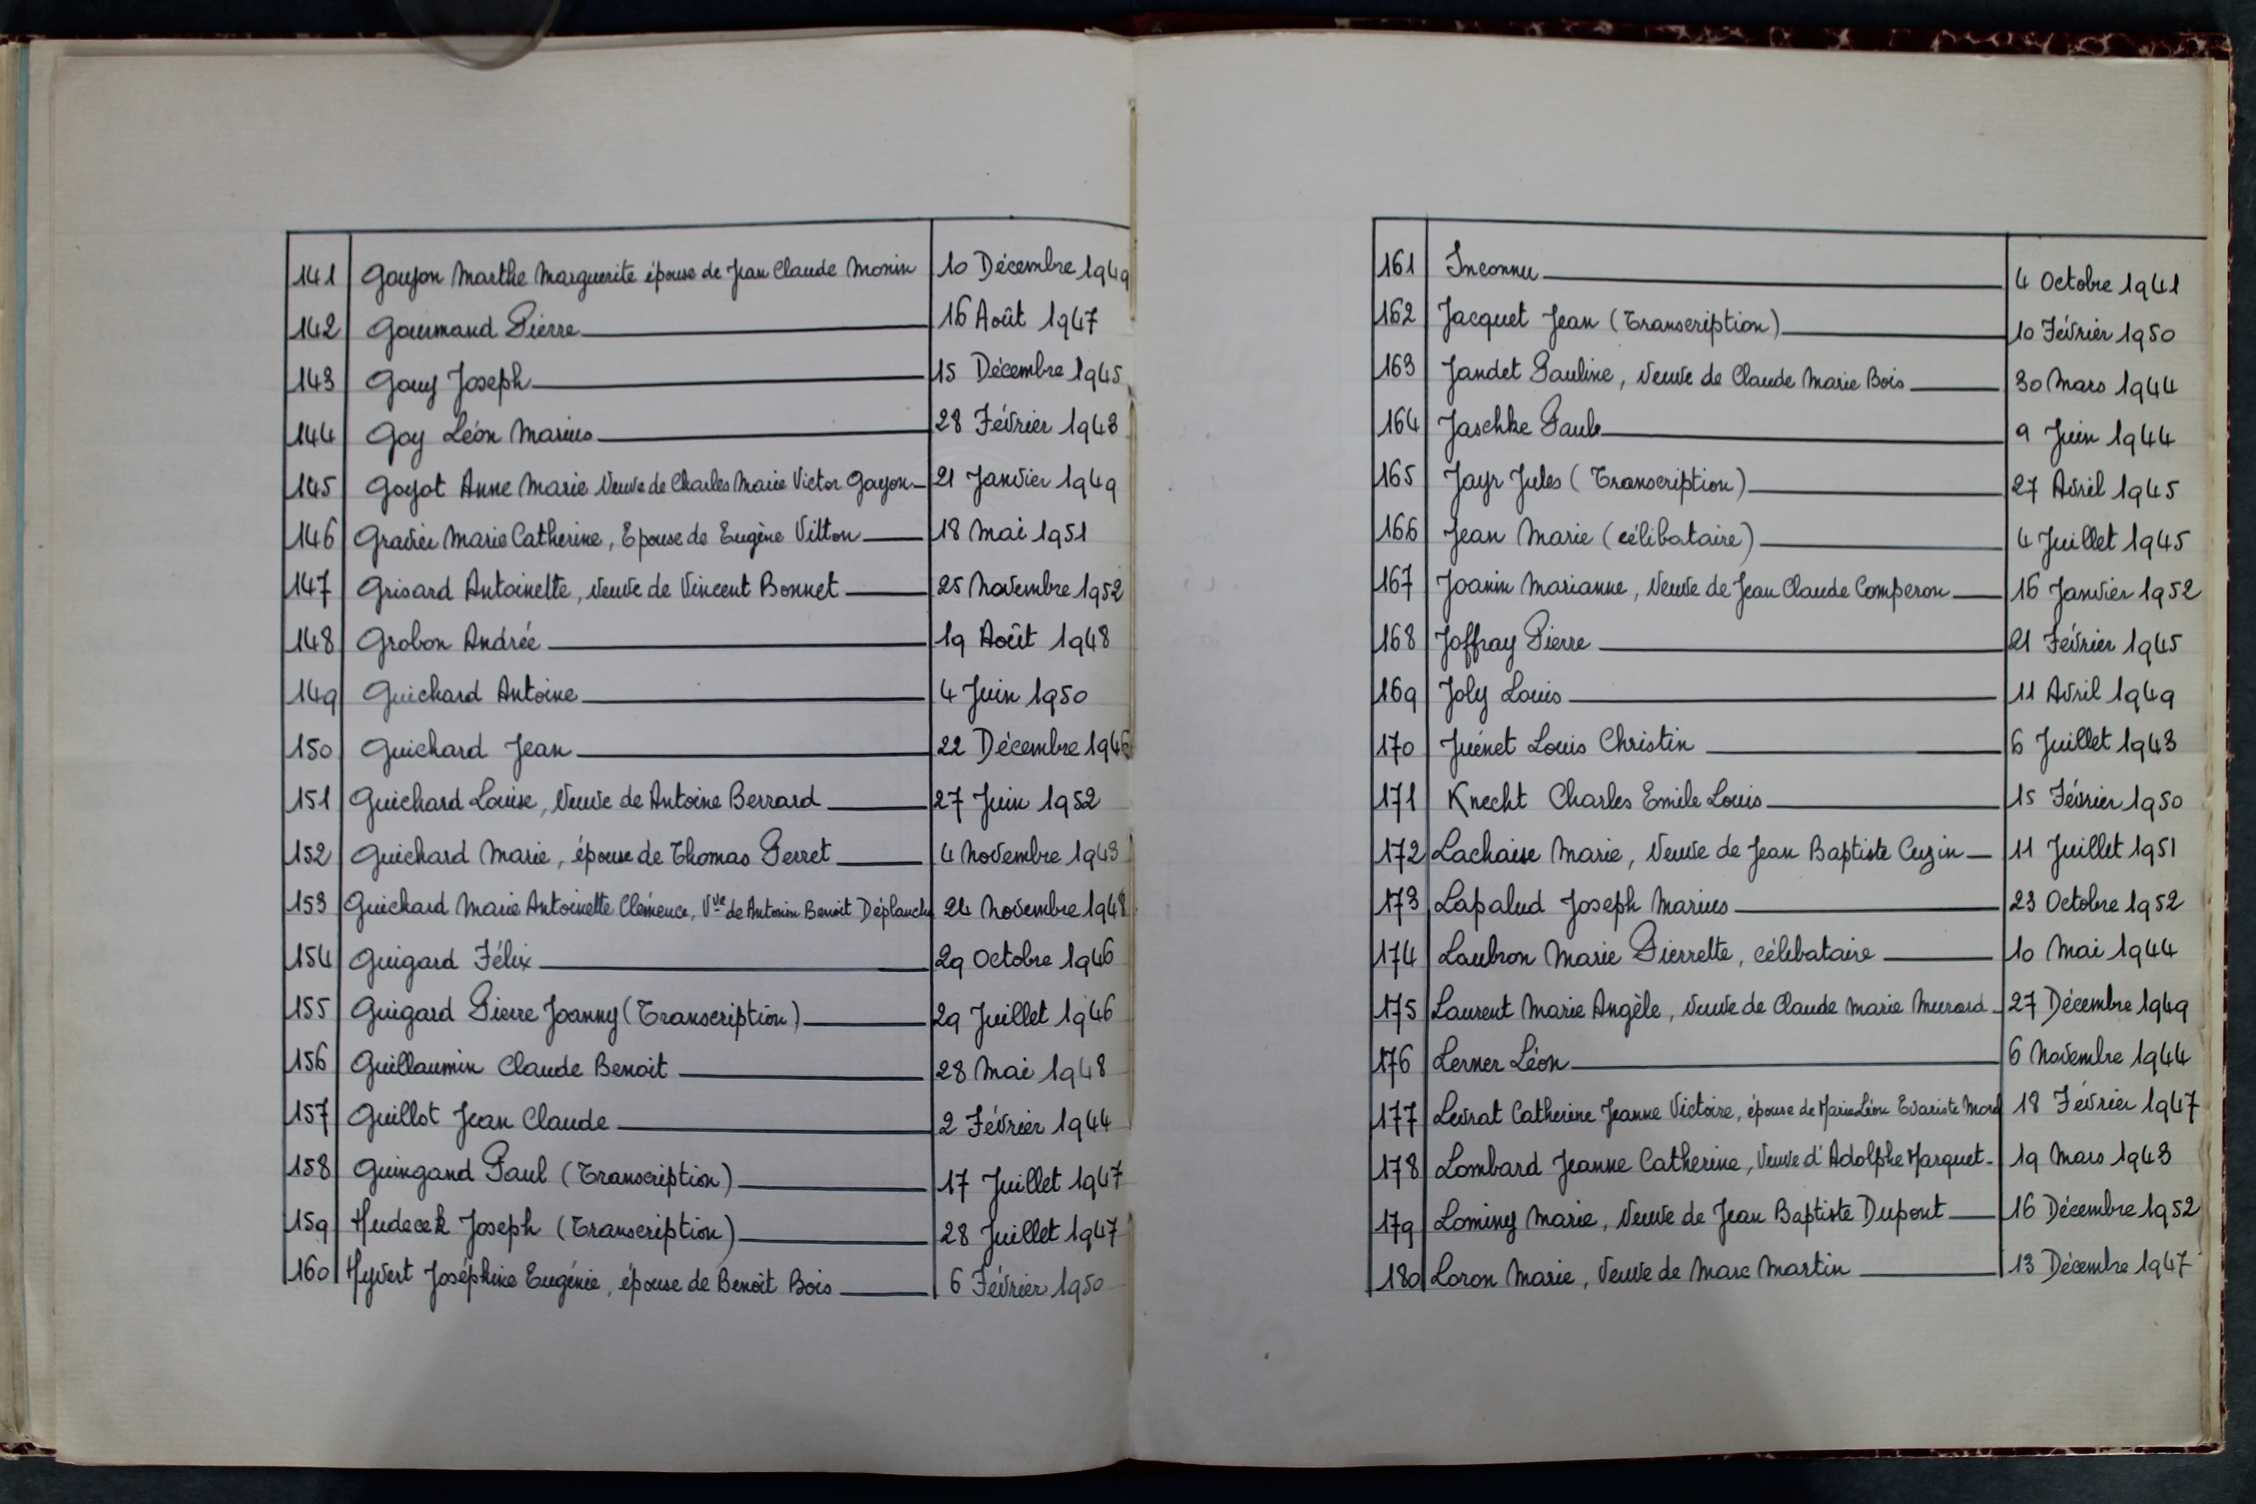 141 Goujon Marthe Marguerite épouse de Jean Claude Monin 10 Décembre 1949
142 Gourmand Pierre 16 Août 1947
143 Gouy Joseph 15 Décembre 1945
144 Goy Léon Marius 28 Février 1943
145 Goyot Anne Marie Veuve de Charles Marie Victor Goyon 21 Janvier 1949
146 Gravier Marie Catherine, Epouse de Eugène Vitton 18 Mai 1951
147 Grisard Antoinette, Veuve de Vincent Bonnet 25 Novembre 1952
148 Grobon Andrée 19 Août 1948
149 Guichard Antoine 4 Juin 1950
150 Guichard Jean 22 Décembre 1946
151 Guichard Louise, Veuve de Antoine Berrard 27 Juin 1952
152 Guichard Marie, épouse de Thomas Perret 4 Novembre 1943
153 Guichard Marie Antoinette Clémence, Vve de Antonin Benoit Déplanche 24 Novembre 1948
154 Guigard Félix 29 Octobre 1946
155 Guigard Pierre Joanny (Transcription) 29 Juillet 1946
156 Guillaumin Claude Benoit 28 Mai 1948
157 Guillot Jean Claude 2 Février 1944
158 Guingand Paul (Transcription) 17 Juillet 1947
159 Hudecek Joseph (Transcription) 28 Juillet 1947
160 Hyvert Joséphine Eugénie, épouse de Benoit Bois 6 Février 1950
161 Inconnu 4 Octobre 1941
162 Jacquet Jean (Transcription) 10 Février 1950
163 Jandet Pauline, Veuve de Claude Marie Bois 30 Mars 1944
164 Jaschke Paul 9 Juin 1944
165 Jayr Jules (Transcription) 27 Avril 1945
166 Jean Marie (célibataire) 4 Juillet 1945
167 Joanin Marianne, Veuve de Jean Claude Comperon 16 Janvier 1952
168 Joffray Pierre 21 Février 1945
169 Joly Louis 11 Avril 1949
170 Juénet Louis Christin 6 Juillet 1943
171 Knecht Charles Emile Louis 15 Février 1950
172 Lachaise Marie, Veuve de Jean Baptiste Cuzin 11 Juillet 1951
173 Lapalud Joseph Marius 23 Octobre 1952
174 Laubron Marie Pierrette, célibataire 10 Mai 1944
175 Laurent Marie Angèle, Veuve de Claude Marie Murard 27 Décembre 1949
176 Lerner Léon 6 Novembre 1944
177 Levrat Catherine Jeanne Victoire, épouse de Marie Léon Evariste Morel 18 Février 1947
178 Lombard Jeanne Catherine, Veuve d'Adolphe Marquet 19 Mars 1943
179 Lominy Marie, Veuve de Jean Baptiste Dupont 16 Décembre 1952
180 Loron Marie, Veuve de Marc Martin 13 Décembre 1947